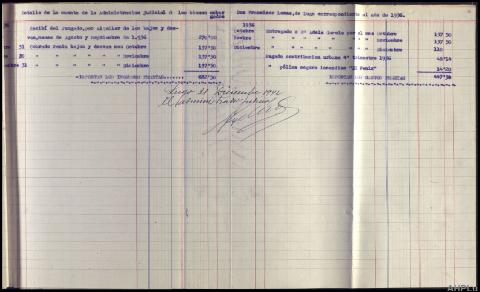 Detalle de la cuenta de la Administracion judicial á los bienes embargados Don Francisco Lamas, de Lugo correspondiente al año de 1936.
Recibí del Juzgado, por alquiler de los bajos y desvan, meses de Agosto y septiembre de 1.936 275'50
31 Cobrado renta bajos y desvan mes octubre 137'50
30 " " " " " " noviembre 137'50
31 " " " " " " diciembre 137'50
=IMPORTAN LOS INGRESOS PESETAS......
1936
Octubre Entregado a Dª Adela Varela por el mes Octubre 137 50
Novbre " " " " " " Noviembre 137'50
Diciembre " " " " " " Diciembre
Pagado contribución urbana 4º trimestre 1936
" póliza seguro incendios "El Fenix"
IMPORTAN LOS GASTOS PESETAS
Lugo 31 Diciembre 1942
El administrador judicial
AHPLu